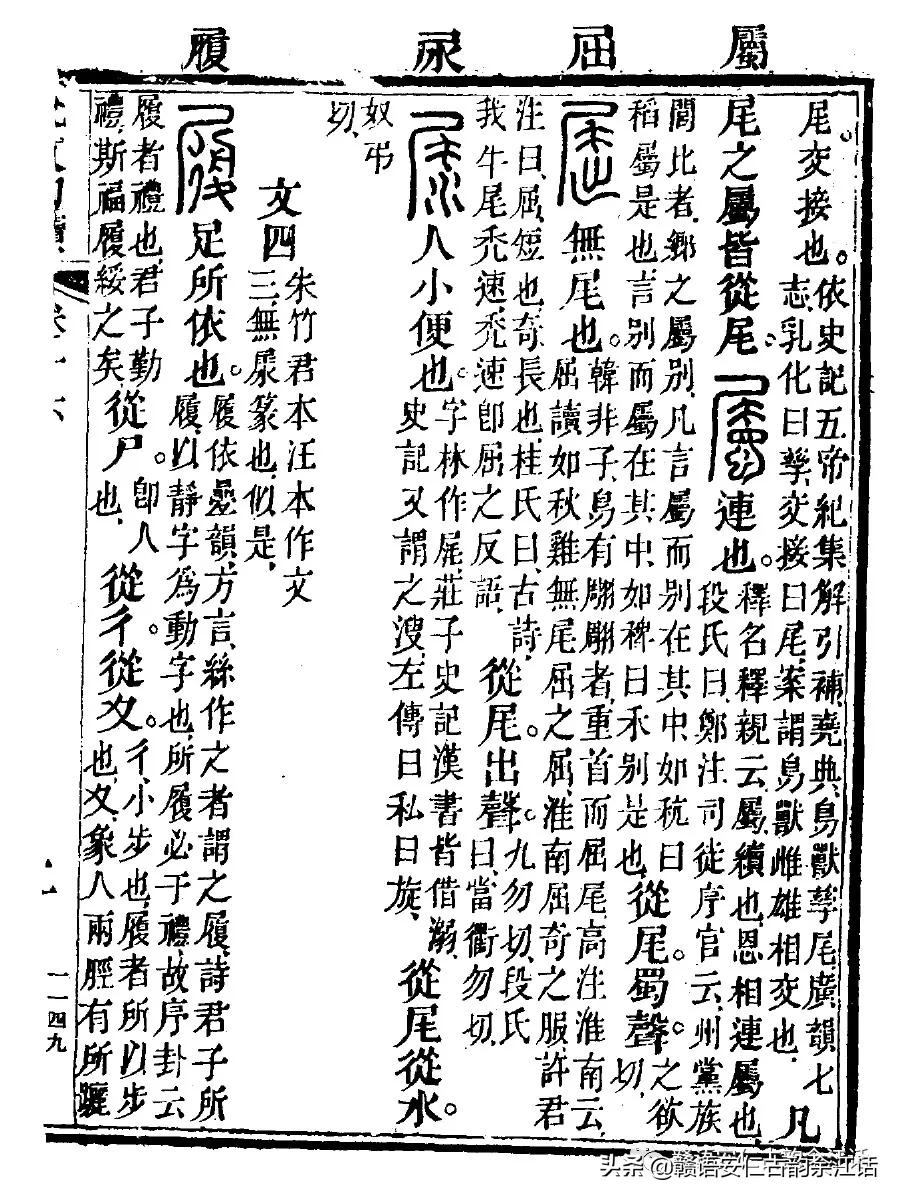 屬
屈
尿
履
尾。交接也。
依史記五帝紀集解引補堯典鳥獸孳尾廣韻七
志乳化曰孳交接曰尾案謂鳥獸雌雄相交也
凡
尾之屬皆從尾
連也。
釋名釋親云屬續也恩相連屬也
段氏曰鄭注司徒序官云州黨族
閭比者鄉之屬別凡言屬而別在其中如秔曰
稻屬是也言別而屬在其中如稗曰禾別是也
從尾。蜀聲。
之欲
切
無尾也。
韓非子鳥有翢翢者重首而屈尾高注淮南云
屈讀如秋雞無尾屈之屈淮南屈奇之服許君
注曰屈短也奇長也桂氏曰古詩
我牛尾禿速禿速卽屈之反語
從尾。出聲。
九勿切段氏
曰當衢勿切
人小便也。
字林作莊子史記漢書皆借溺
史記又謂之溲左傳曰私曰旋
從尾從水。
奴弔
切
文四
朱竹君本汪本作文
三無篆也似是
足所依也。
履依疊韻方言絲作之者謂之履詩君子所
履以靜字爲動字也所履必于禮故序卦云
履者禮也君子勤
禮斯福履綏之矣
從尸。
卽人
也
從彳從夊。
彳小步也履者所以步
也夊象人兩脛有所躧
卷十六
一一四九
头条@赣语安仁古韵余江话